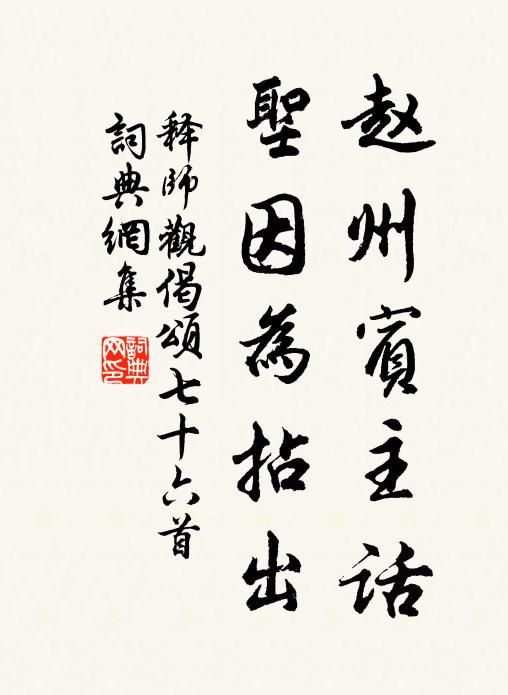 赵州賓主話
聖因為拈出
释師觀偈頌七十六首
詞典網集
詞典網印